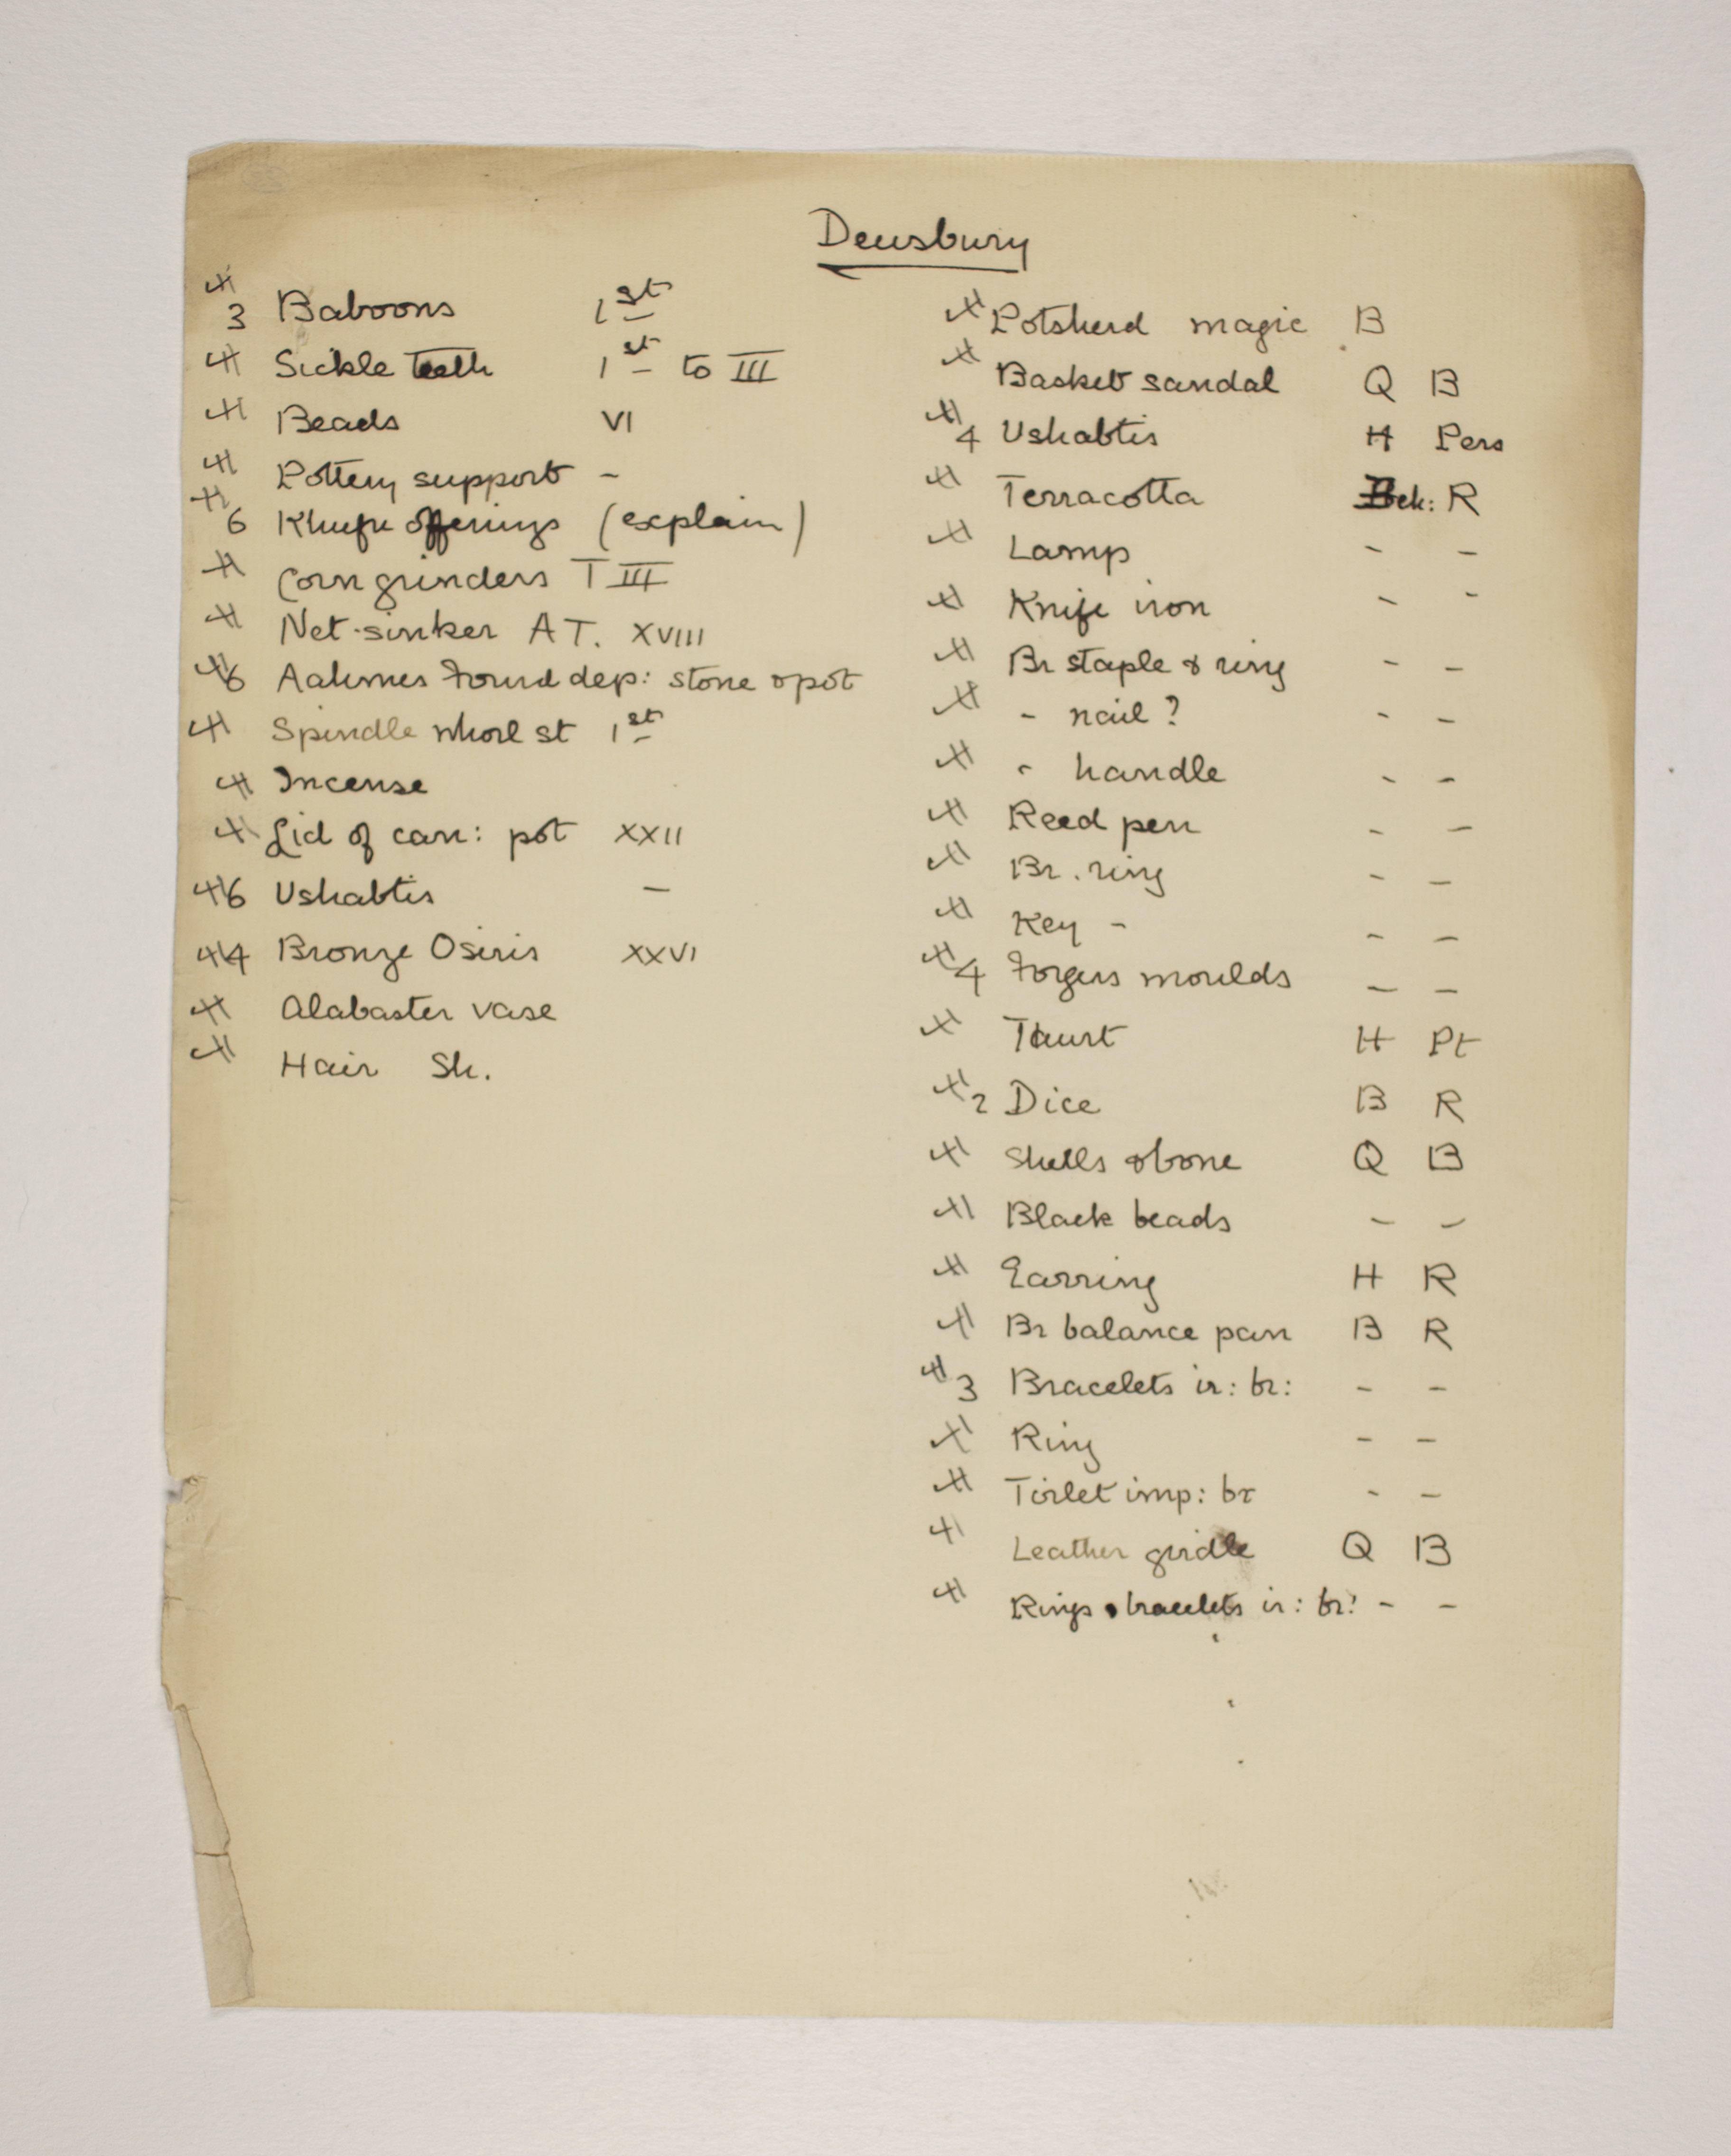 Dewsbury
3 Baboons 1st
Sickle teeth 1st to III
Beads VI
Pottery support -
6 Khufu offerings (explain)
Corn grinders T III
Net-sinker A T. XVIII
6 Aahmes Found dep: stone & pot
Spindle whorl st 1st
Incense
Lid of can: pot XXII
6 Ushabtis -
4 Bronze Osiris XXVI
Alabaster vase
Hair Sh.
Potsherd magic B
Basket sandal Q B
4 Ushabtis H Pers
Terracotta Beh: R
Lamp - -
Knife iron - -
Br staple & ring - -
- nail? - -
- handle - -
Reed pen - -
Br. ring - -
Key - - -
4 Forgers moulds - -
Taurt H Pt
2 Dice B R
Shells & bone Q B
Black beads - -
Earring H R
Br balance pan B R
3 Bracelets ir: br: - -
Ring - -
Toilet imp: br - -
Leather girdle Q B
Rings bracelets ir: br: - -